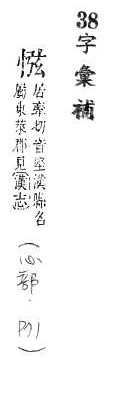 38
字彙補
惤 居牽切音堅漢縣名
屬東萊郡見漢志
(心部.